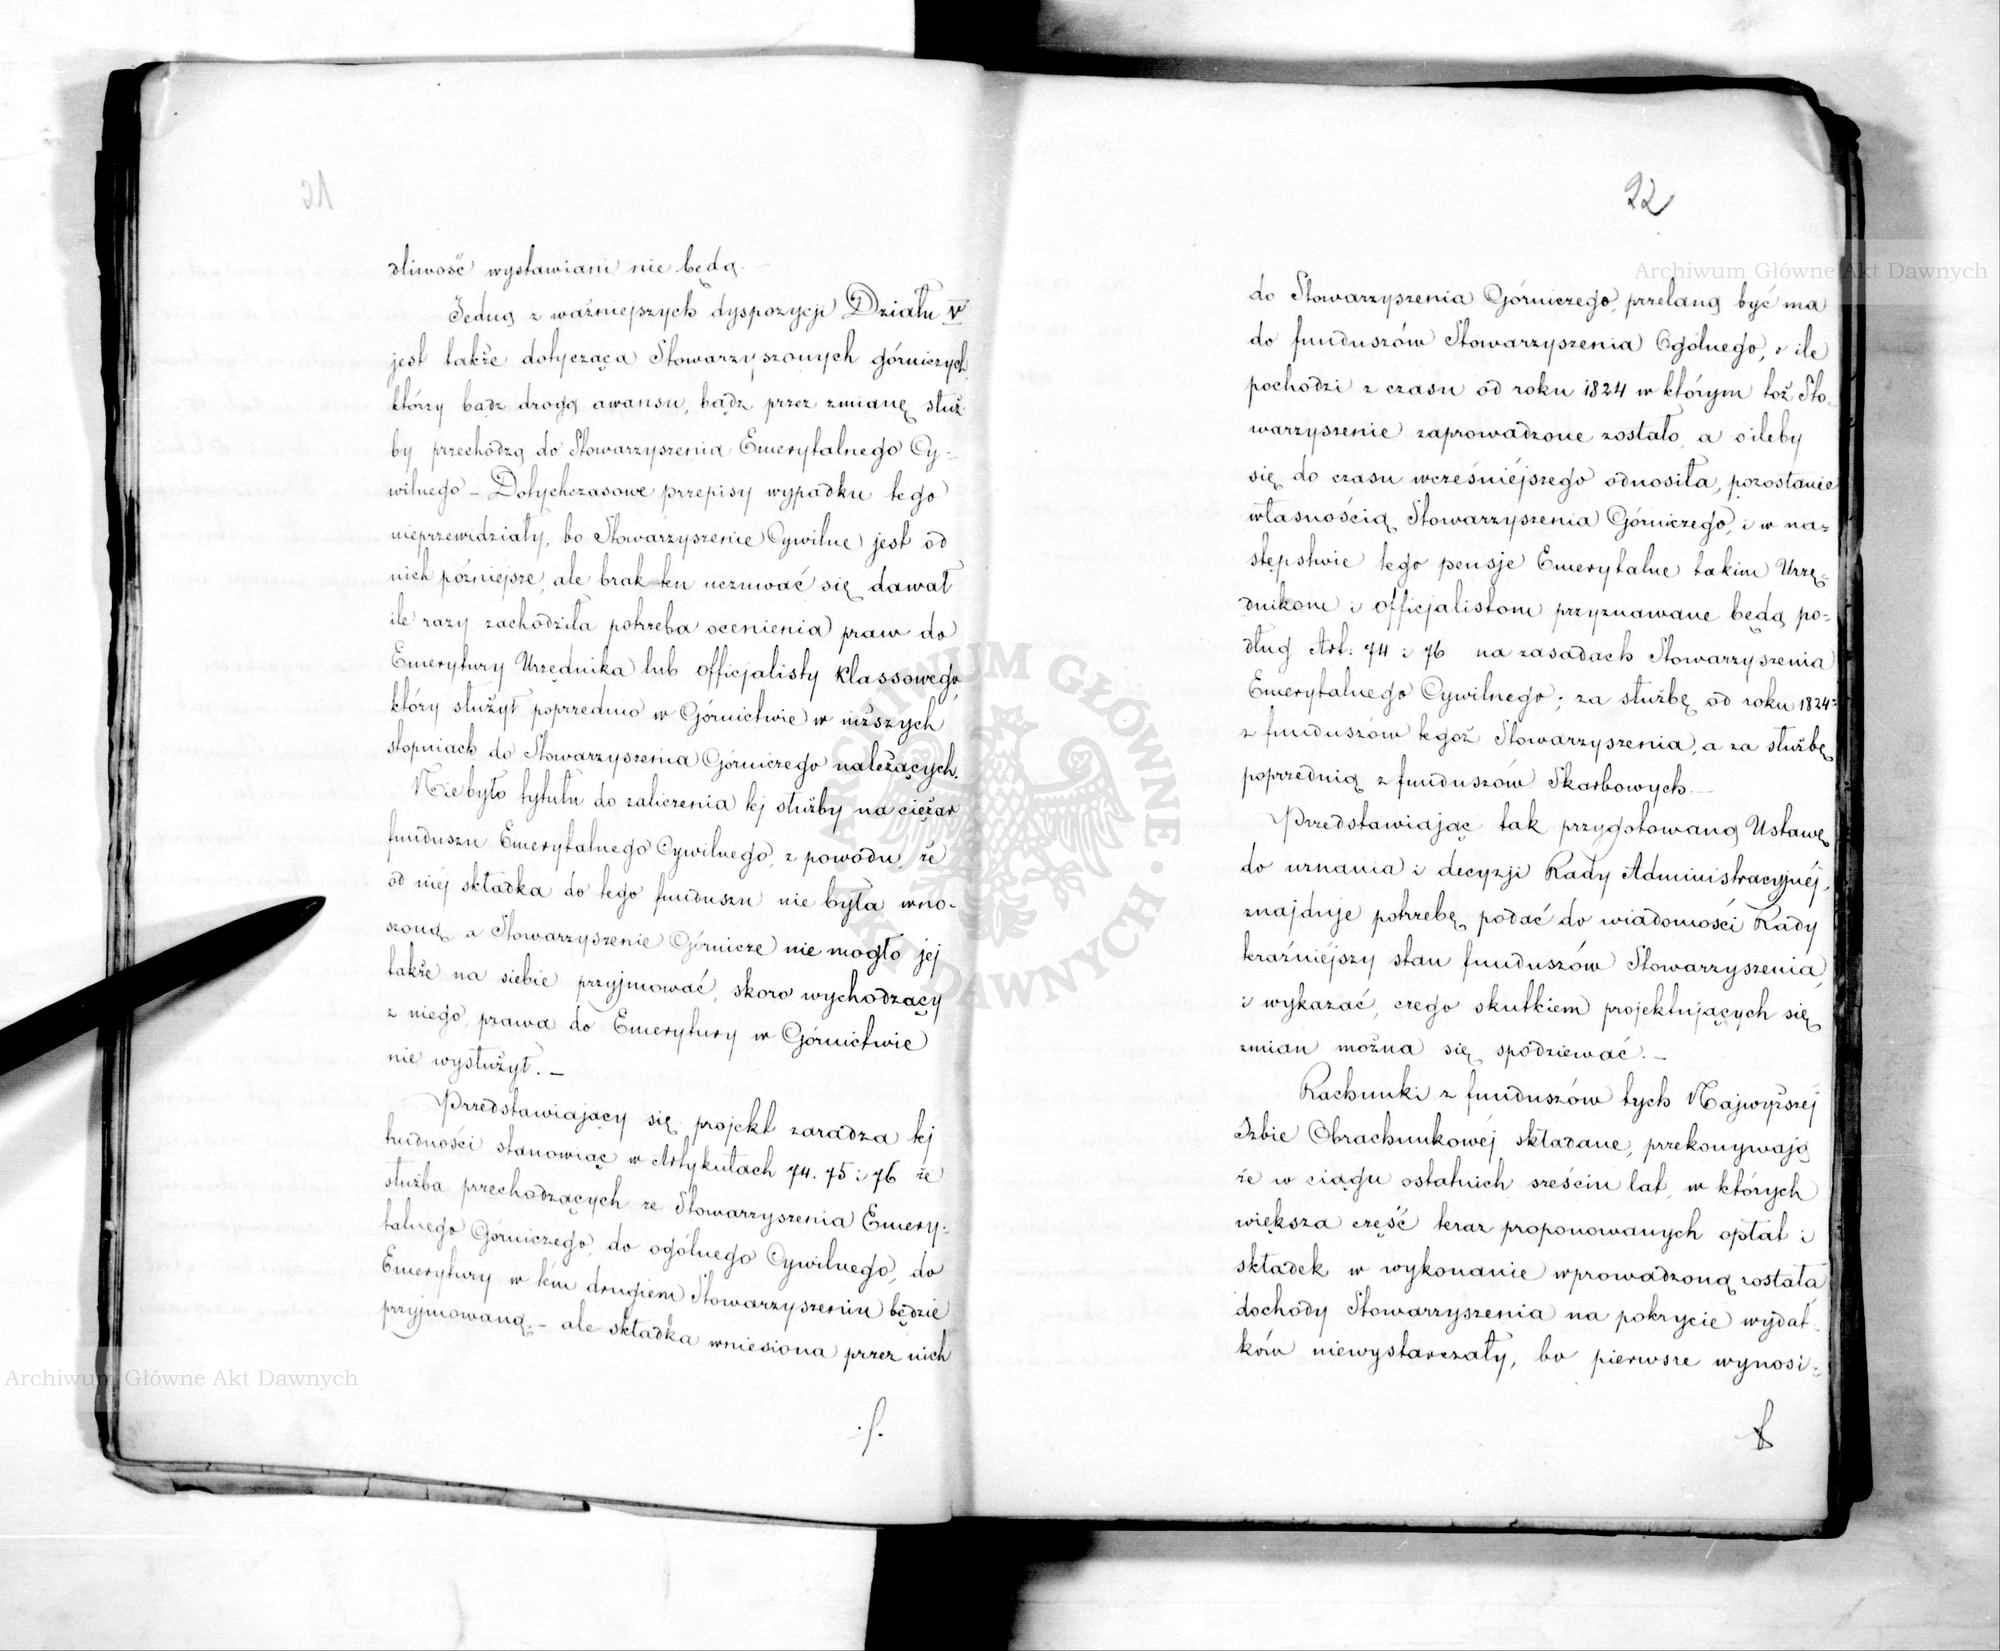 21
dliwość wystawiani nie będą. —
Jedną z ważniejszych dyspozycji Działu V
jest także dotycząca Stowarzyszonych górniczych
którzy bądz drogą awansu, bądz przez zmianę służ-
by przechodzą do Stowarzyszenia Emerytalnego Cy-
wilnego – Dotychczasowe przepisy wypadku tego
nieprzewidziały, bo Stowarzyszenie Cywilne jest od
nich późniejsze, ale brak ten uczuwać się dawał
ile razy zachodziła potrzeba ocenienia praw do
Emerytury Urzędnika lub officjalisty klassowego,
który służył poprzednio w Górnictwie w niższych
stopniach do Stowarzyszenia Górniczego należących.
Niebyło tytułu do zaliczenia tej służby na ciężar
funduszu Emerytalnego Cywilnego, z powodu, że
od niej składka do tego funduszu nie była wno-
szoną, a Stowarzyszenie Górnicze nie mogło jej
także na siebie przyjmować, skoro wychodzący
z niego, prawa do Emerytury w Górnictwie
nie wysłużył. —
Przedstawiający się projekt zaradza tej
trudności stanowiąc w Artykułach 74. 75 i 76 że
służba przechodzących ze Stowarzyszenia Emery-
talnego Górniczego, do ogólnego Cywilnego, do
Emerytury w tém drugiem Stowarzyszeniu będzie
przyjmowaną. – ale składka wniesiona przez nich
22
do Stowarzyszenia Górniczego, przelaną być ma
do funduszów Stowarzyszenia Ogólnego, o ile
pochodzi z czasu od roku 1824 w którym toż Sto-
warzyszenie zaprowadzone zostało, a oileby
się do czasu wcześniéjszego odnosiła, pozostanie
własnością Stowarzyszenia Górniczego, i w na-
stępstwie tego pensje Emerytalne takim Urzę-
dnikom i officjalistom przyznawane będą po-
dług Art: 74 i 76 na zasadach Stowarzyszenia
Emerytalnego Cywilnego; za służbę od roku 1824
z funduszów tegoż Stowarzyszenia, a za służbę
poprzednią z funduszów Skarbowych. —
Przedstawiając tak przygotowaną Ustawę
do uznania i decyzji Rady Administracyjnéj,
znajduje potrzebę podać do wiadomości Rady
teraźniéjszy stan funduszów Stowarzyszenia,
i wykazać, czego skutkiem projektujących się
zmian można się spodziewać. —
Rachunki z funduszów tych Najwyższéj
Izbie Obrachunkowéj składane, przekonywają
że w ciągu ostatnich sześciu lat, w których
większa część teraz proponowanych opłat i
składek w wykonanie wprowadzoną została
dochody Stowarzyszenia na pokrycie wydat-
ków niewystarczały, bo pierwsze wynosi-
Archiwum Główne Akt Dawnych
Archiwum Główne Akt Dawnych
ARCHIWUM GŁÓWNE · AKT DAWNYCH ·